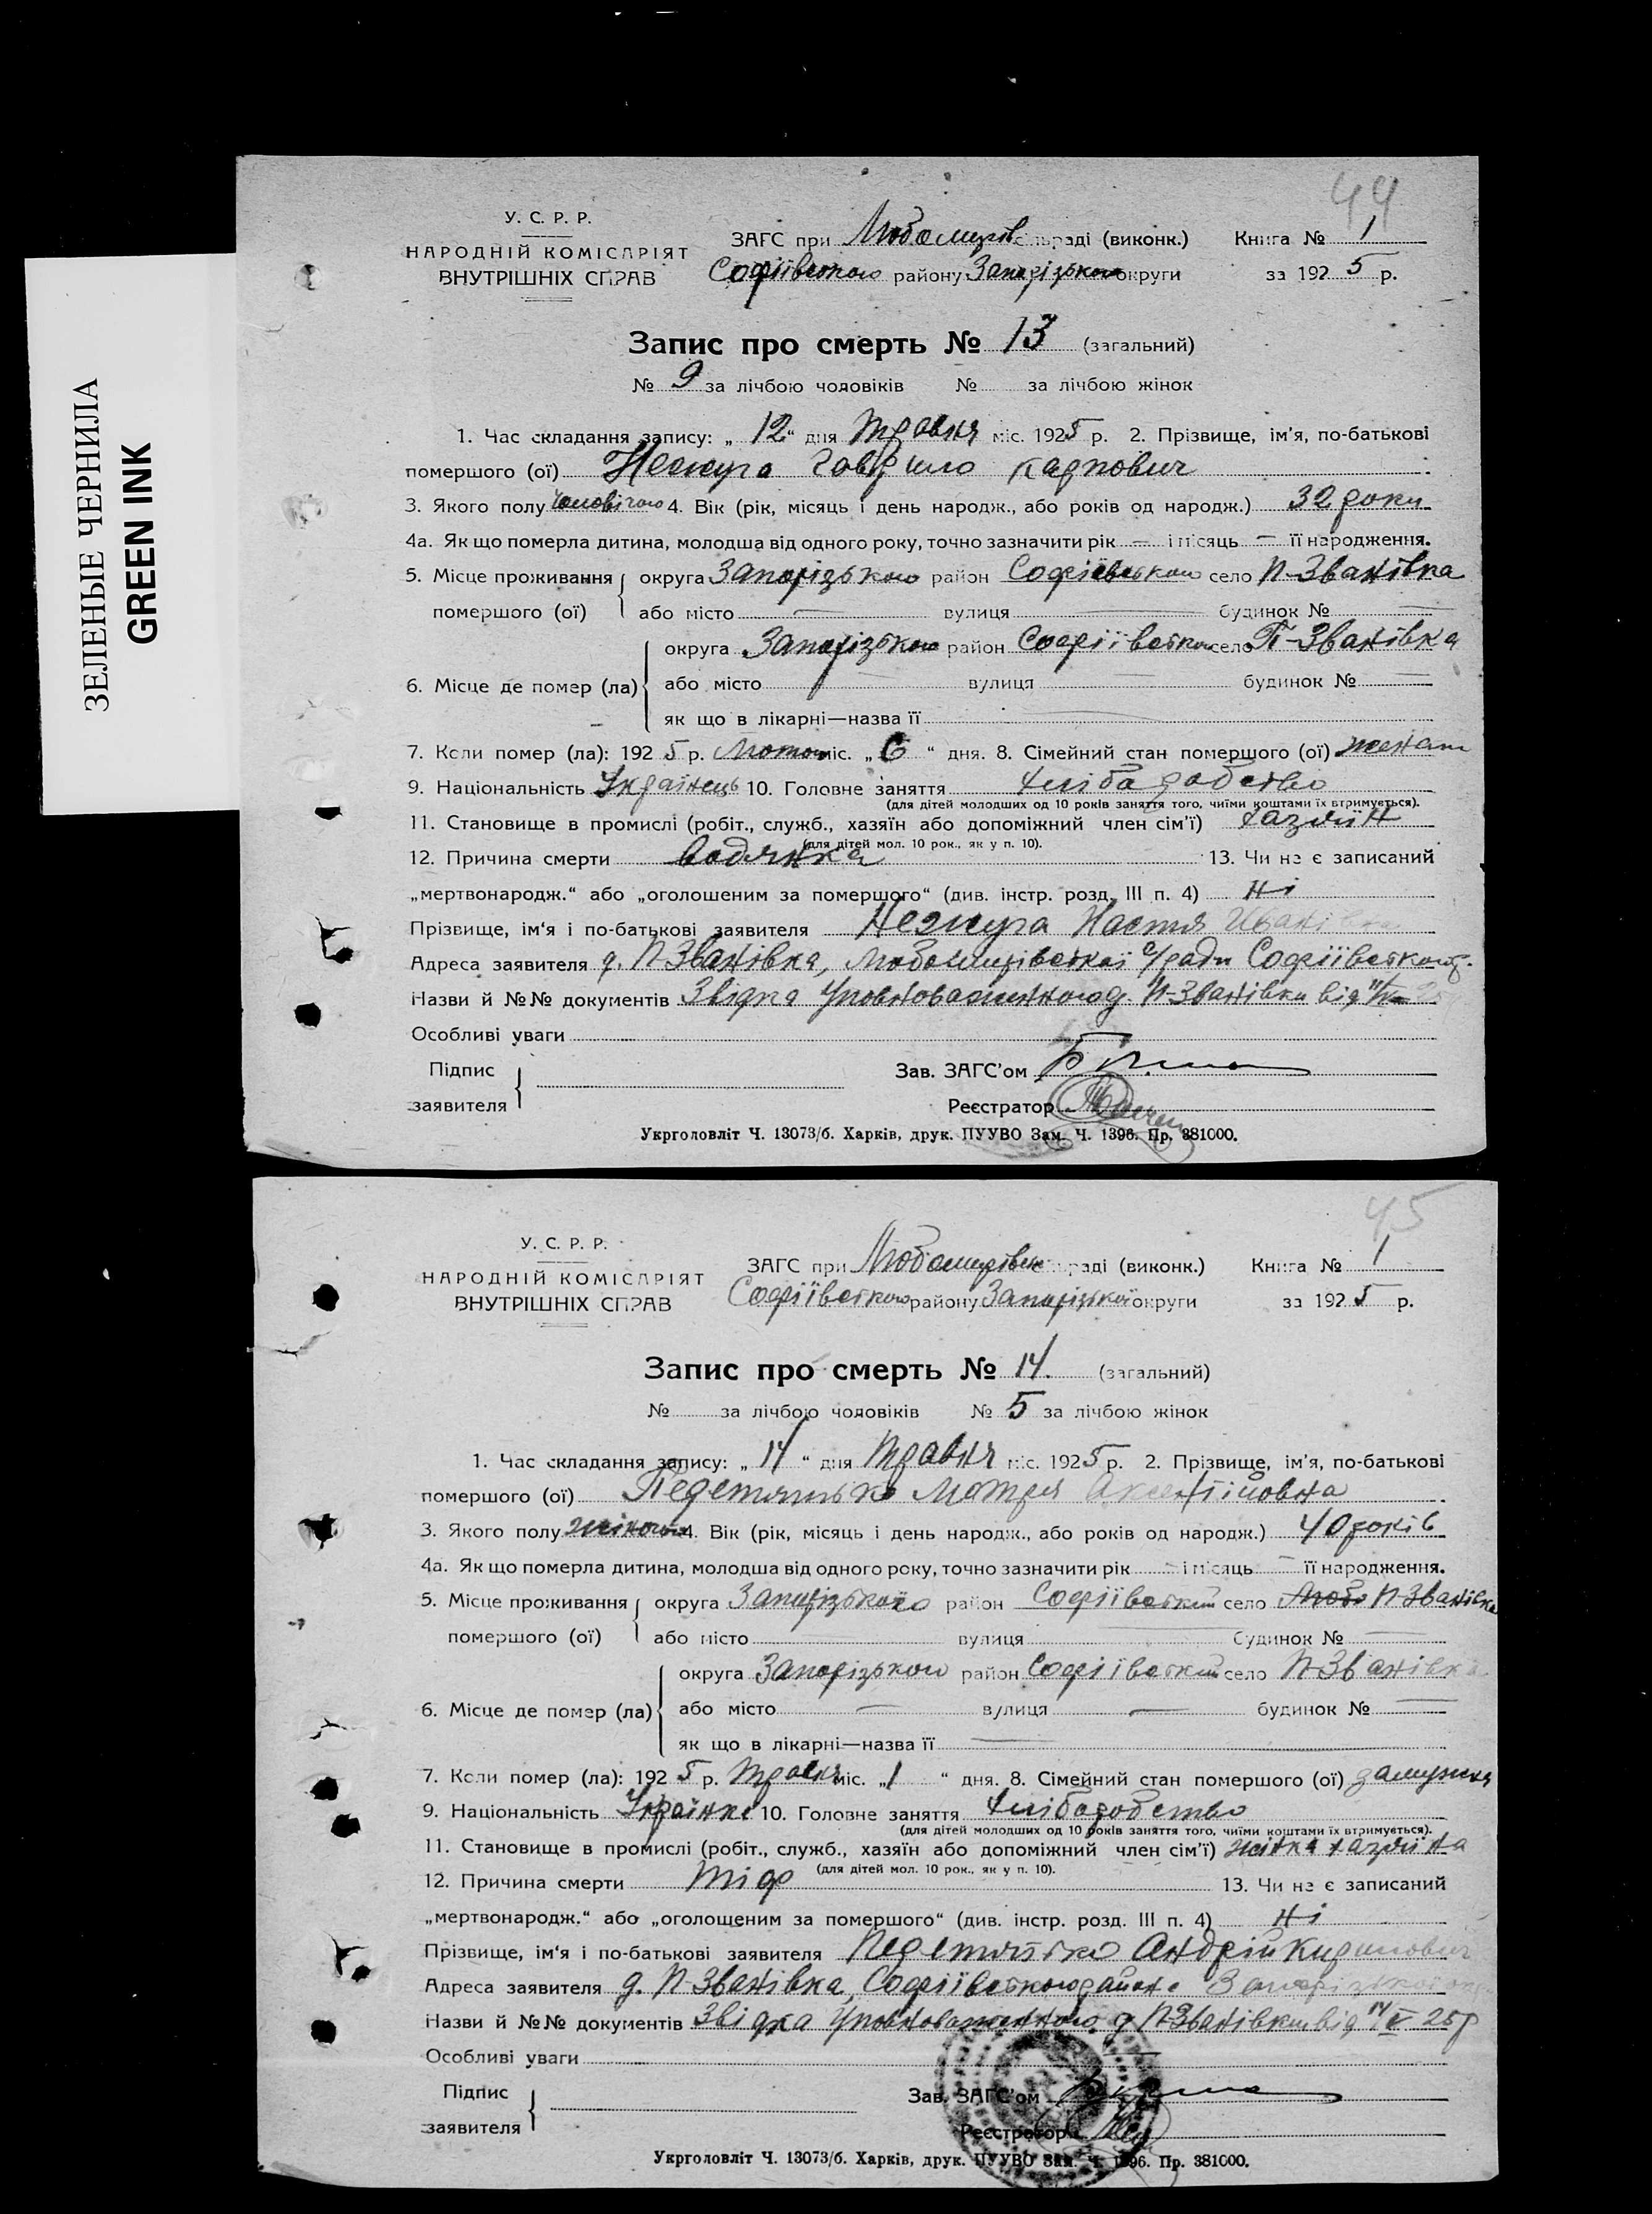 ЗЕЛЕНЫЕ ЧЕРНИЛА
GREEN INK
44
У. С. Р. Р.
НАРОДНІЙ КОМІСАРІЯТ
ВНУТРІШНІХ СПРАВ
ЗАГС при Любомирів сільраді (виконк.) Книга № 1
Софіївского району Запорізького округи за 1925 р.
Запис про смерть № 13 (загальний)
№ 9 за лічбою чоловіків № за лічбою жінок
1. Час складання запису: „ 12 “ дня Травня міс. 1925 р. 2. Прізвище, ім'я, по-батькові
помершого (ої) Нежура Гаврило Карпович
3. Якого полу Чоловічого 4. Вік (рік, місяць і день народж., або років од народж.) 32 роки
4а. Як що померла дитина, молодша від одного року, точно зазначити рік — і місяць — її народження.
5. Місце проживання округа Запорізького район Софіївського село П-Званівка
помершого (ої) або місто — вулиця — будинок № —
округа Запорізького район Софіївского село П-Званівка
6. Місце де помер (ла) або місто — вулиця — будинок № —
як що в лікарні—назва її —
7. Коли помер (ла): 1925 р. Лютого міс. „ 6 “ дня. 8. Сімейний стан помершого (ої) женат
9. Національність Українець 10. Головне заняття Хліборобство
(для дітей молодших од 10 років заняття того, чиїми коштами їх втримується).
11. Становище в промислі (робіт., служб., хазяїн або допоміжний член сім'ї) хазяїн
(для дітей мол. 10 рок., як у п. 10).
12. Причина смерти водянка 13. Чи не є записаний
„мертвонародж.“ або „оголошеним за помершого“ (див. інстр. розд. III п. 4) ні
Прізвище, ім'я і по-батькові заявителя Нежура Настя Іванівна
Адреса заявителя д. П-Званівка, Любомирівскої с/ради Софіївского р.
Назви й №№ документів Звідка Уповноваженного д. П-Званівки від
Особливі уваги
Підпис Зав. ЗАГС'ом
заявителя Реєстратор
Укрголовліт Ч. 13073/б. Харків, друк. ПУУВО Зам. Ч. 1396. Пр. 381000.
45
У. С. Р. Р.
НАРОДНІЙ КОМІСАРІЯТ
ВНУТРІШНІХ СПРАВ
ЗАГС при Любомирівск раді (виконк.) Книга № 1
Софіївского району Запорізької округи за 1925 р.
Запис про смерть № 14. (загальний)
№ за лічбою чоловіків № 5 за лічбою жінок
1. Час складання запису: „ 14 “ дня Травня міс. 1925 р. 2. Прізвище, ім'я, по-батькові
помершого (ої) Педетятько Мотря Аксентіиовна
3. Якого полу жіночого 4. Вік (рік, місяць і день народж., або років од народж.) 40 років
4а. Як що померла дитина, молодша від одного року, точно зазначити рік — і місяць — її народження.
5. Місце проживання округа Запорізького район Софіївский село П-Званівка
помершого (ої) або місто вулиця — будинок № —
округа Запорізького район Софіївский село П-Званівка
6. Місце де помер (ла) або місто — вулиця — будинок № —
як що в лікарні—назва її —
7. Коли помер (ла): 1925 р. Травня міс. „ 1 “ дня. 8. Сімейний стан помершого (ої) замужня
9. Національність Українка 10. Головне заняття Хліборобство
(для дітей молодших од 10 років заняття того, чиїми коштами їх втримується).
11. Становище в промислі (робіт., служб., хазяїн або допоміжний член сім'ї) жінка хазяїна
(для дітей мол. 10 рок., як у п. 10).
12. Причина смерти тіф 13. Чи не є записаний
„мертвонародж.“ або „оголошеним за помершого“ (див. інстр. розд. III п. 4) ні
Прізвище, ім'я і по-батькові заявителя Педетятько Андрій Кирилович
Адреса заявителя д. П-Званівка, Софіївского району Запорізької окр
Назви й №№ документів Звідка Уповноваженного д. П-Званівки від 14/V 25 р
Особливі уваги
Підпис Зав. ЗАГС'ом
заявителя Реєстратор
Укрголовліт Ч. 13073/б. Харків, друк. ПУУВО Зам. Ч. 1396. Пр. 381000.